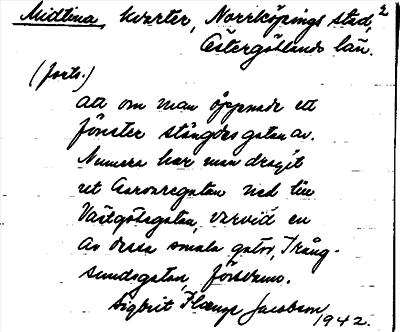 Midtina, kvarter, Norrköpings stad, 2
Östergötlands län.
(forts.)
att om man öppnade ett
fönster stängdes gatan av.
Numera har man dragit
ut Gamregatan ned till
Västgötegatan, varvid en
av dessa smala gator, Trång-
sundsgatan, försvann.
Sigbrit Jacobson
1942.